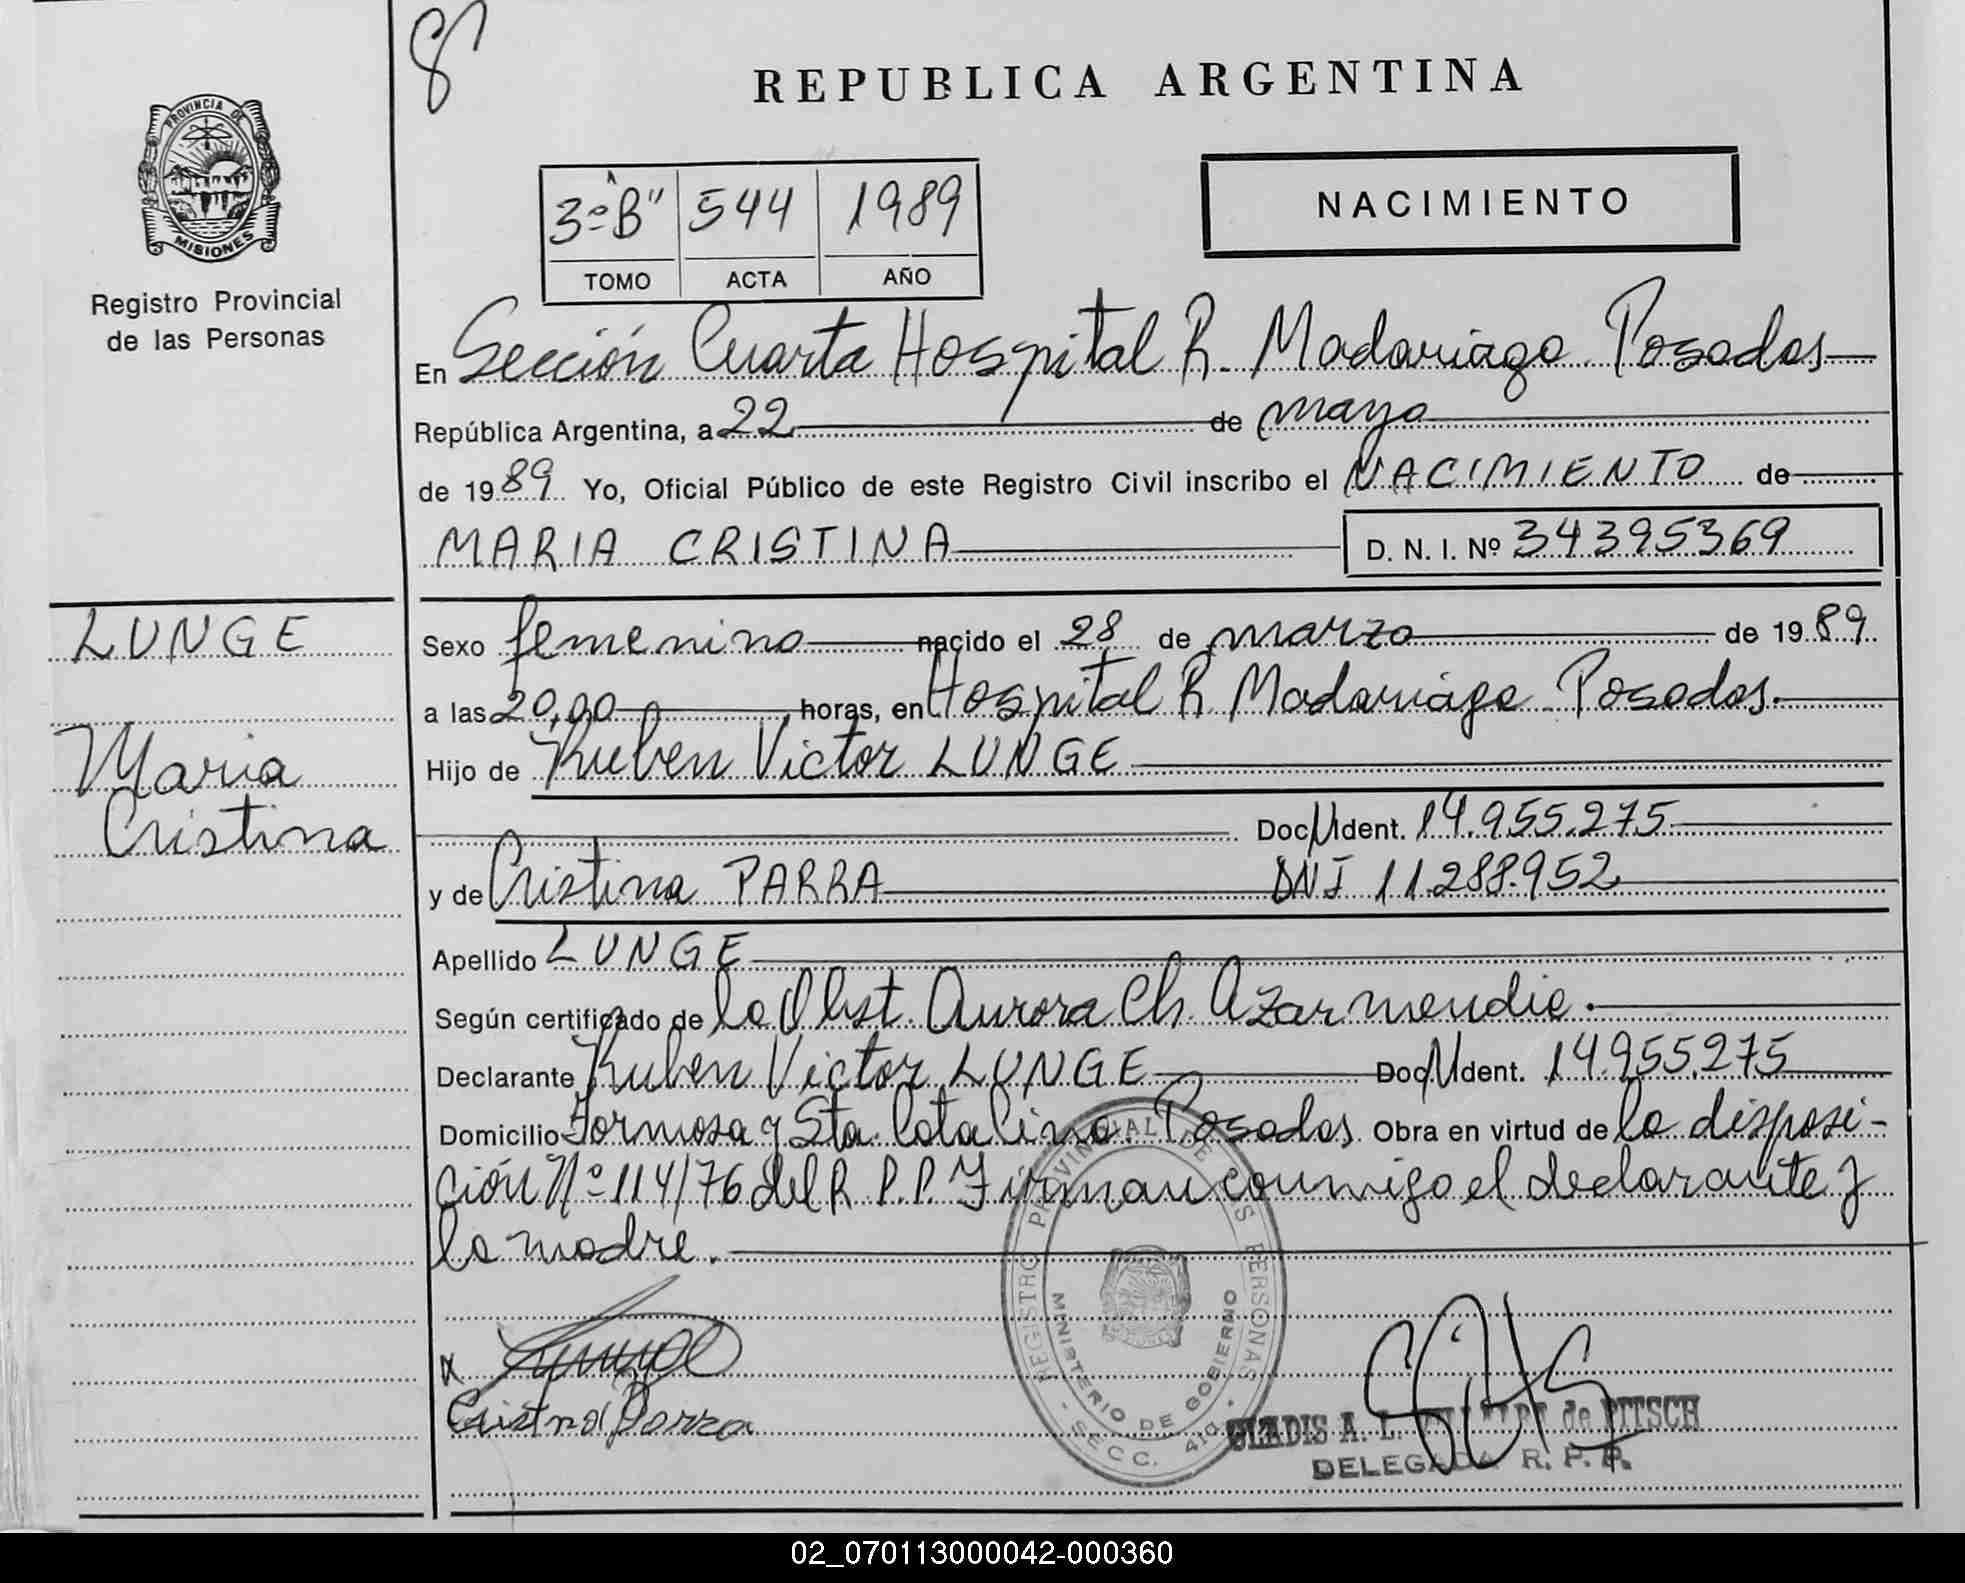 8
REPUBLICA ARGENTINA
PROVINCIA DE
MISIONES
Registro Provincial
de las Personas
3º "B" 544 1989
TOMO ACTA AÑO
NACIMIENTO
En Sección Cuarta Hospital R. Madariaga Posadas
República Argentina, a 22 de mayo
de 1989 Yo, Oficial Público de este Registro Civil inscribo el NACIMIENTO de
MARIA CRISTINA D. N. I. Nº 34395369
LUNGE
Maria
Cristina
Sexo femenino nacido el 28 de marzo de 1989
a las 20,00 horas, en Hospital R. Madariaga Posadas.
Hijo de Ruben Victor LUNGE
Doc. Ident. 14.955.275
y de Cristina PARRA DNI 11.288.952
Apellido LUNGE
Según certificado de la Obst. Aurora Ch. Azarmendia.
Declarante Ruben Victor LUNGE Doc. Ident. 14.955.275
Domicilio Formosa y Sta. Catalina. Posadas. Obra en virtud de la disposi-
ción Nº 114/76 del R.P.P. Firman conmigo el declarante y
la madre.
x
Cristina Parra
REGISTRO PROVINCIAL DE LAS PERSONAS
MINISTERIO DE GOBIERNO
- SECC. 4TO. -
GLADIS A. L. de PITSCH
DELEGADA R. P. P.
02_070113000042-000360